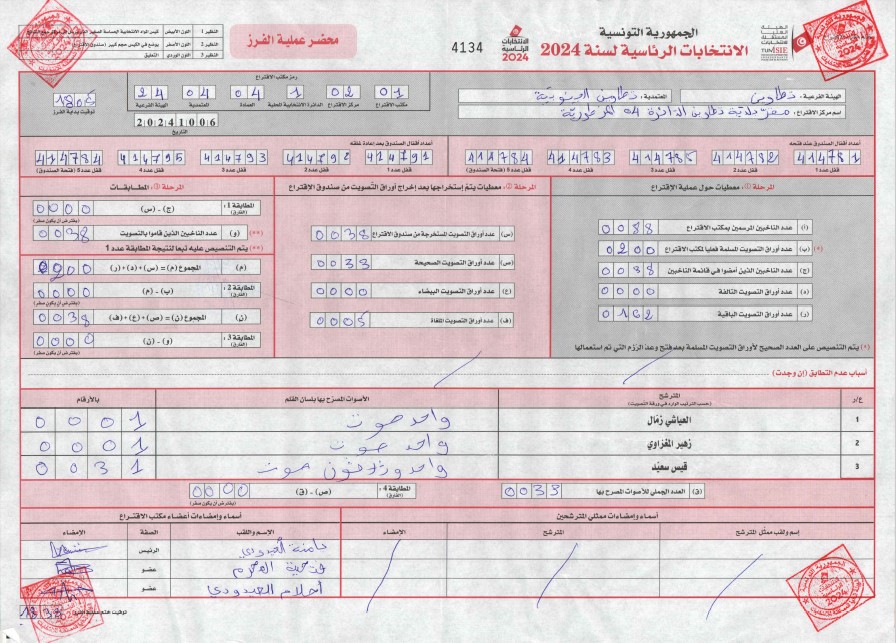 الجمهورية التونسية
الانتخابات الرئاسية لسنة 2024
الانتخابات الرئاسية 2024
4134
محضر عملية الفرز
النظير 1 اللون الأبيض
النظير 2 اللون الأسمر
النظير 3 اللون الوردي التعليق
الهيئة الفرعية: تطاوين المعتمدية:
اسم مركز الاقتراع:
رمز مكتب الاقتراع
01 02 1 04 04 24
مكتب الاقتراع مركز الاقتراع الدائرة الانتخابية المحلية العمادة المعتمدية الهيئة الفرعية
20241006
التاريخ
توقيت بداية الفرز
أعداد أقفال الصندوق عند فتحه
414781 414782 414785 414783 414784
قفل عدد 1 قفل عدد 2 قفل عدد 3 قفل عدد 4 قفل عدد 5 (فتحة الصندوق)
أعداد أقفال الصندوق بعد إعادة غلقه
414791 414792 414793 414795 414784
قفل عدد 1 قفل عدد 2 قفل عدد 3 قفل عدد 4 قفل عدد 5 (فتحة الصندوق)
المرحلة 1: معطيات حول عملية الاقتراع
(أ) عدد الناخبين المرسمين بمكتب الاقتراع 0088
(*) (ب) عدد أوراق التصويت المسلمة فعليا لمكتب الاقتراع 0200
(ج) عدد الناخبين الذين أمضوا في قائمة الناخبين 0038
(د) عدد أوراق التصويت التالفة 0000
(ر) عدد أوراق التصويت الباقية 0162
(*) يتم التنصيص على العدد الصحيح لأوراق التصويت المسلمة بعد فتح وعد الرزم التي تم استعمالها
المرحلة 2: معطيات يتم استخراجها بعد إخراج أوراق التصويت من صندوق الاقتراع
(س) عدد أوراق التصويت المستخرجة من صندوق الاقتراع 0038
(ص) عدد أوراق التصويت الصحيحة 0033
(ع) عدد أوراق التصويت البيضاء 0000
(ف) عدد أوراق التصويت الملغاة 0005
المرحلة 3: المطابقات
المطابقة 1: (الفارق) (ج) - (س) 0000
(يفترض أن يكون صفر)
(**) (و) عدد الناخبين الذين قاموا بالتصويت 0038
(**) يتم التنصيص عليه تبعا لنتيجة المطابقة عدد 1
(م) المجموع (م) = (س)+(د)+(ر) 0200
المطابقة 2: (الفارق) (ب) - (م) 0000
(يفترض أن يكون صفر)
(ن) المجموع (ن) = (ص)+(ع)+(ف) 0038
المطابقة 3: (الفارق) (و) - (ن) 0000
(يفترض أن يكون صفر)
أسباب عدم التطابق (إن وجدت)
ع/ر المترشح الأصوات المصرح بها بلسان القلم بالأرقام
(حسب الترتيب الوارد في ورقة التصويت)
1 العياشي زمال واحد صوت 0001
2 زهير المغزاوي واحد صوت 0001
3 قيس سعيد واحد وثلاثون صوت 0031
(ق) العدد الجملي للأصوات المصرح بها 0033
المطابقة 4: (الفارق) (ص) - (ق) 0000
(يفترض أن يكون صفر)
أسماء وإمضاءات ممثلي المترشحين
إسم ولقب ممثل المترشح المترشح الإمضاء
أسماء وإمضاءات أعضاء مكتب الاقتراع
الإسم واللقب الصفة الإمضاء
الرئيس
عضو
أحلام العبدودي عضو